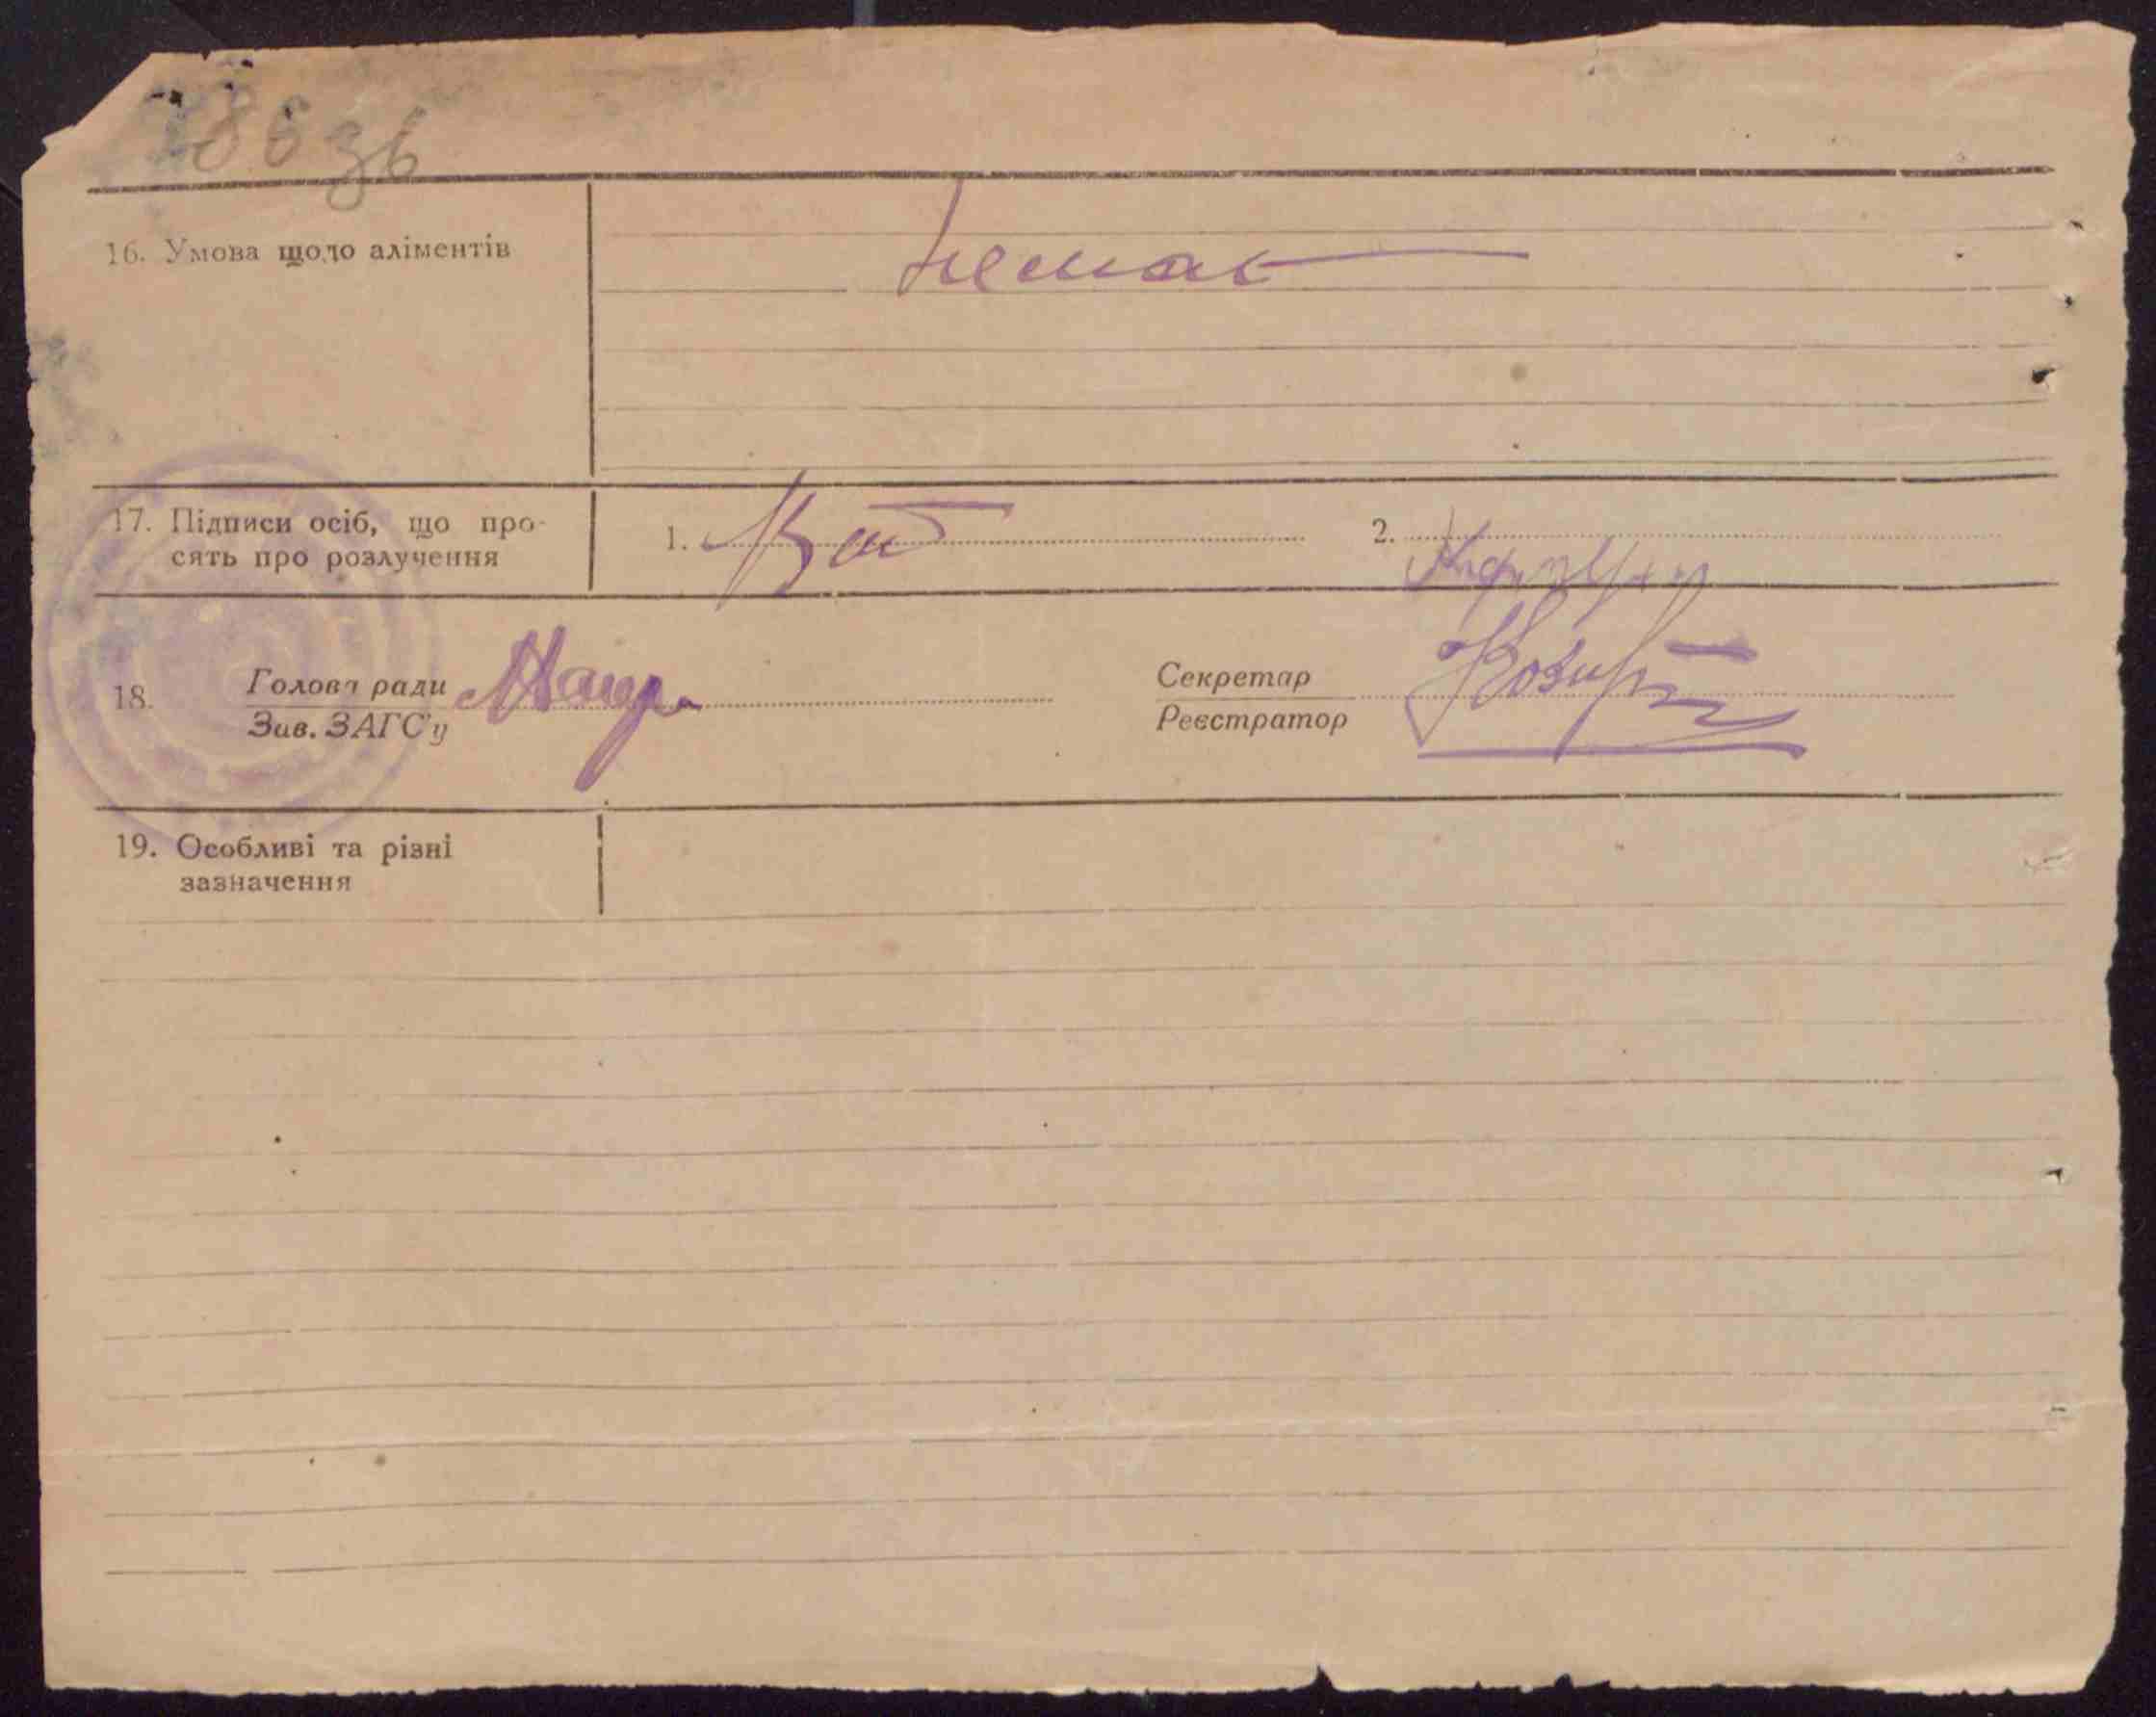 16. Умова щодо аліментів
немає
17. Підписи осіб, що про-
сять про розлучення
1.
2.
18. Голова ради
Зав. ЗАГС'у
Секретар
Реєстратор
19. Особливі та різні
зазначення